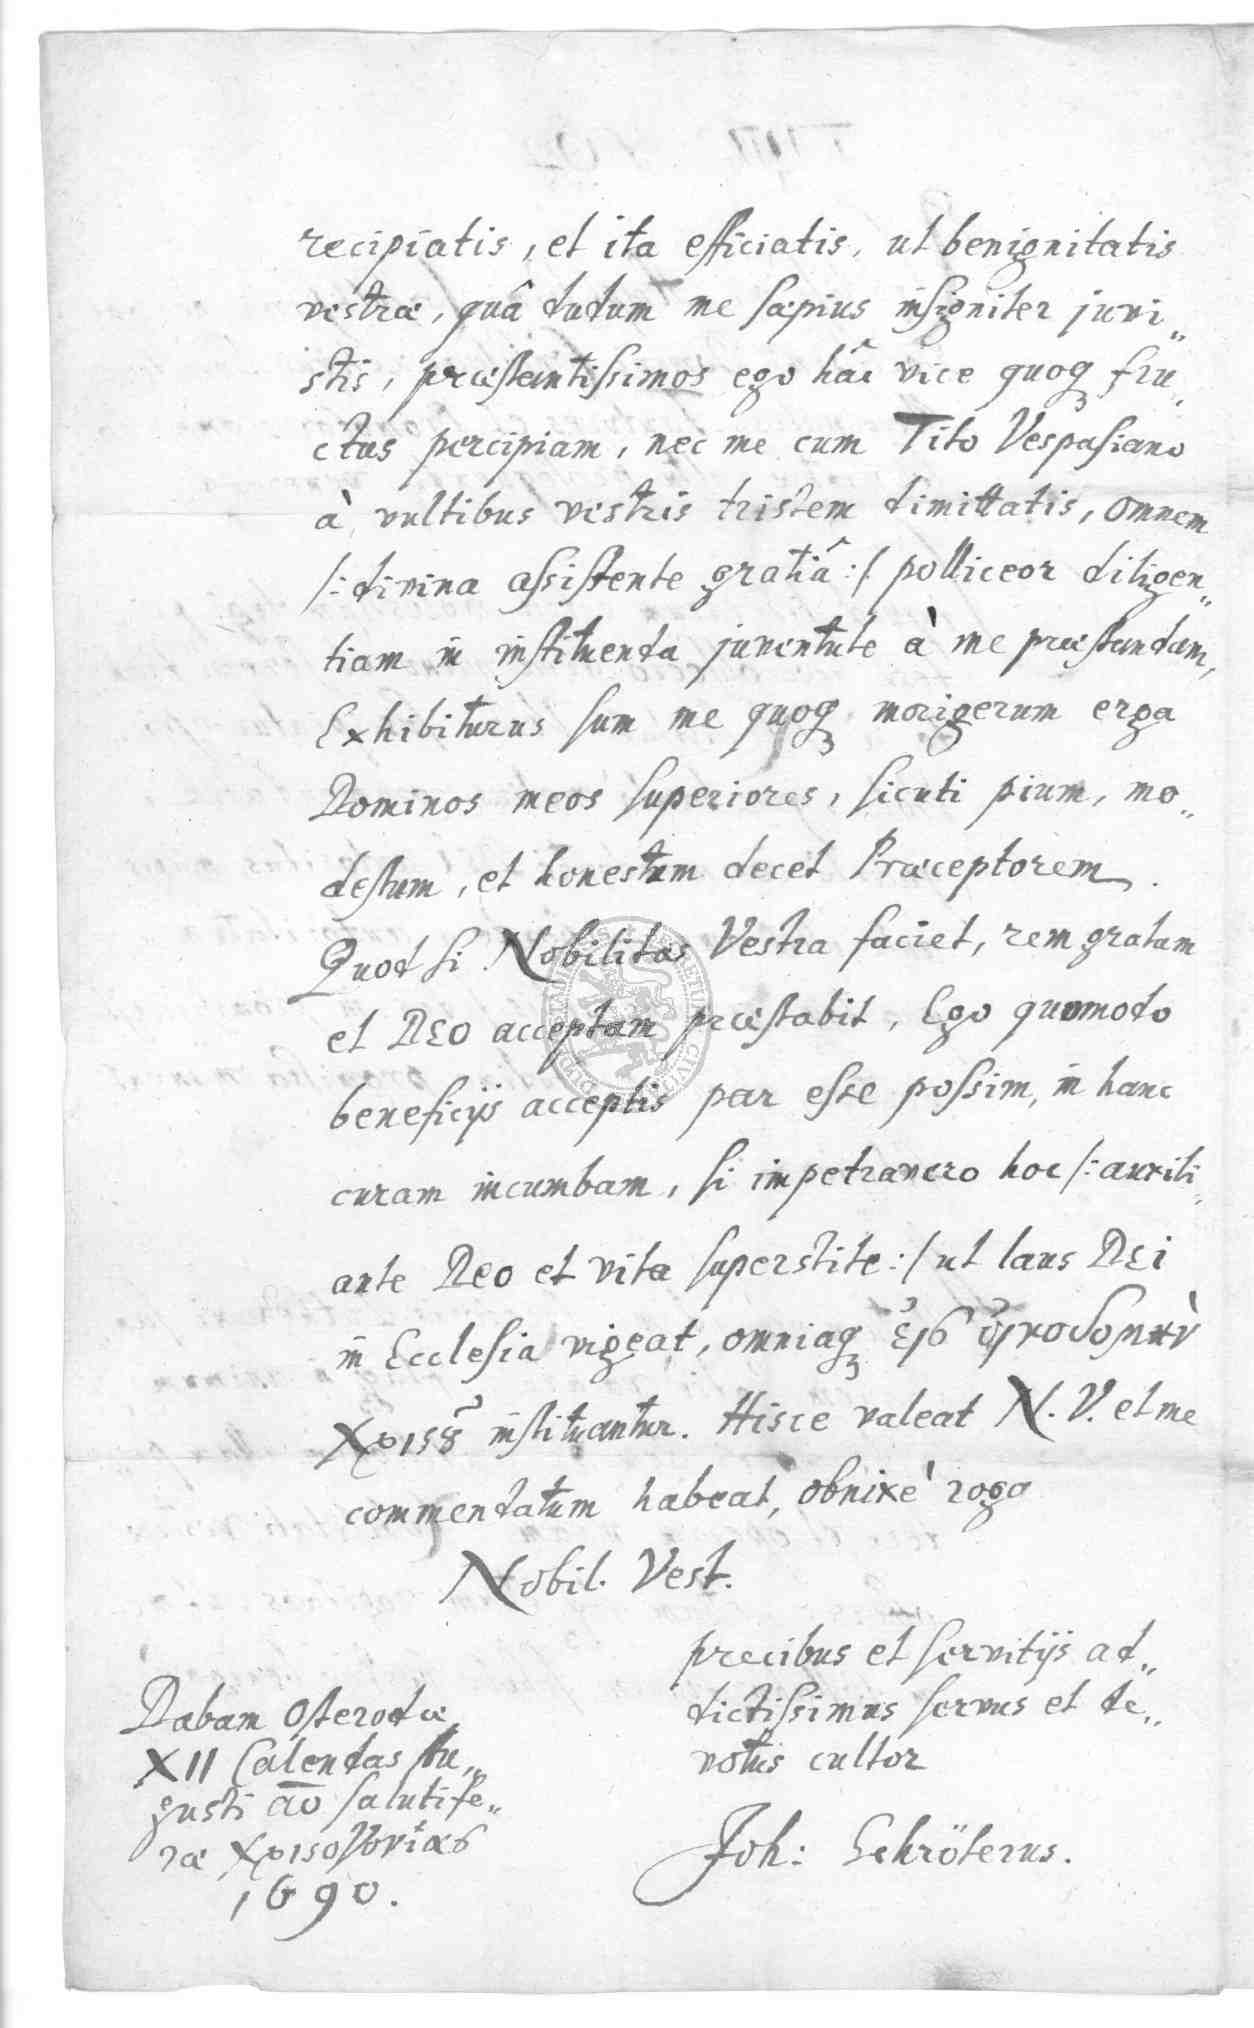 recipiatis, et ita efficiatis, ut benignitatis
vestræ, quâ dudum me sæpius insigniter juvi„
stis, præstantissimos ego hâc vice quoq fru„
ctus percipiam, nec me cum Tito Vespasiano
à vultibus vestris tristem dimittatis, omnem
/: divina assistente gratiâ :/ polliceor diligen„
tiam in instituenda juventute à me præstandam,
Exhibiturus sum me quoq morigerum erga
Dominos meos superiores, sicuti pium, mo„
destum, et honestum decet Præceptorem.
Quod si Nobilitas Vestra faciet, rem gratam
et DEO acceptam præstabit, Ego quomodo
beneficijs acceptis par esse possim, in hanc
curam incumbam, si impetravero hoc /: auxili„
ante Deo et vita superstite :/ ut laus DEi
in Ecclesia vigeat, omniaq εἰς οἰκοδομὴν
Χριςȣ͂ instituantur. Hisce valeat N. V. et me
commendatum habeat, obnixè rogo
Nobil. Vest.
precibus et servitijs ad„
dictissimus servus et de„
votus cultor
Joh: Schröterus.
Dabam Osterodæ
XII Calendas Au„
gusti aō salutife„
ræ
1690.